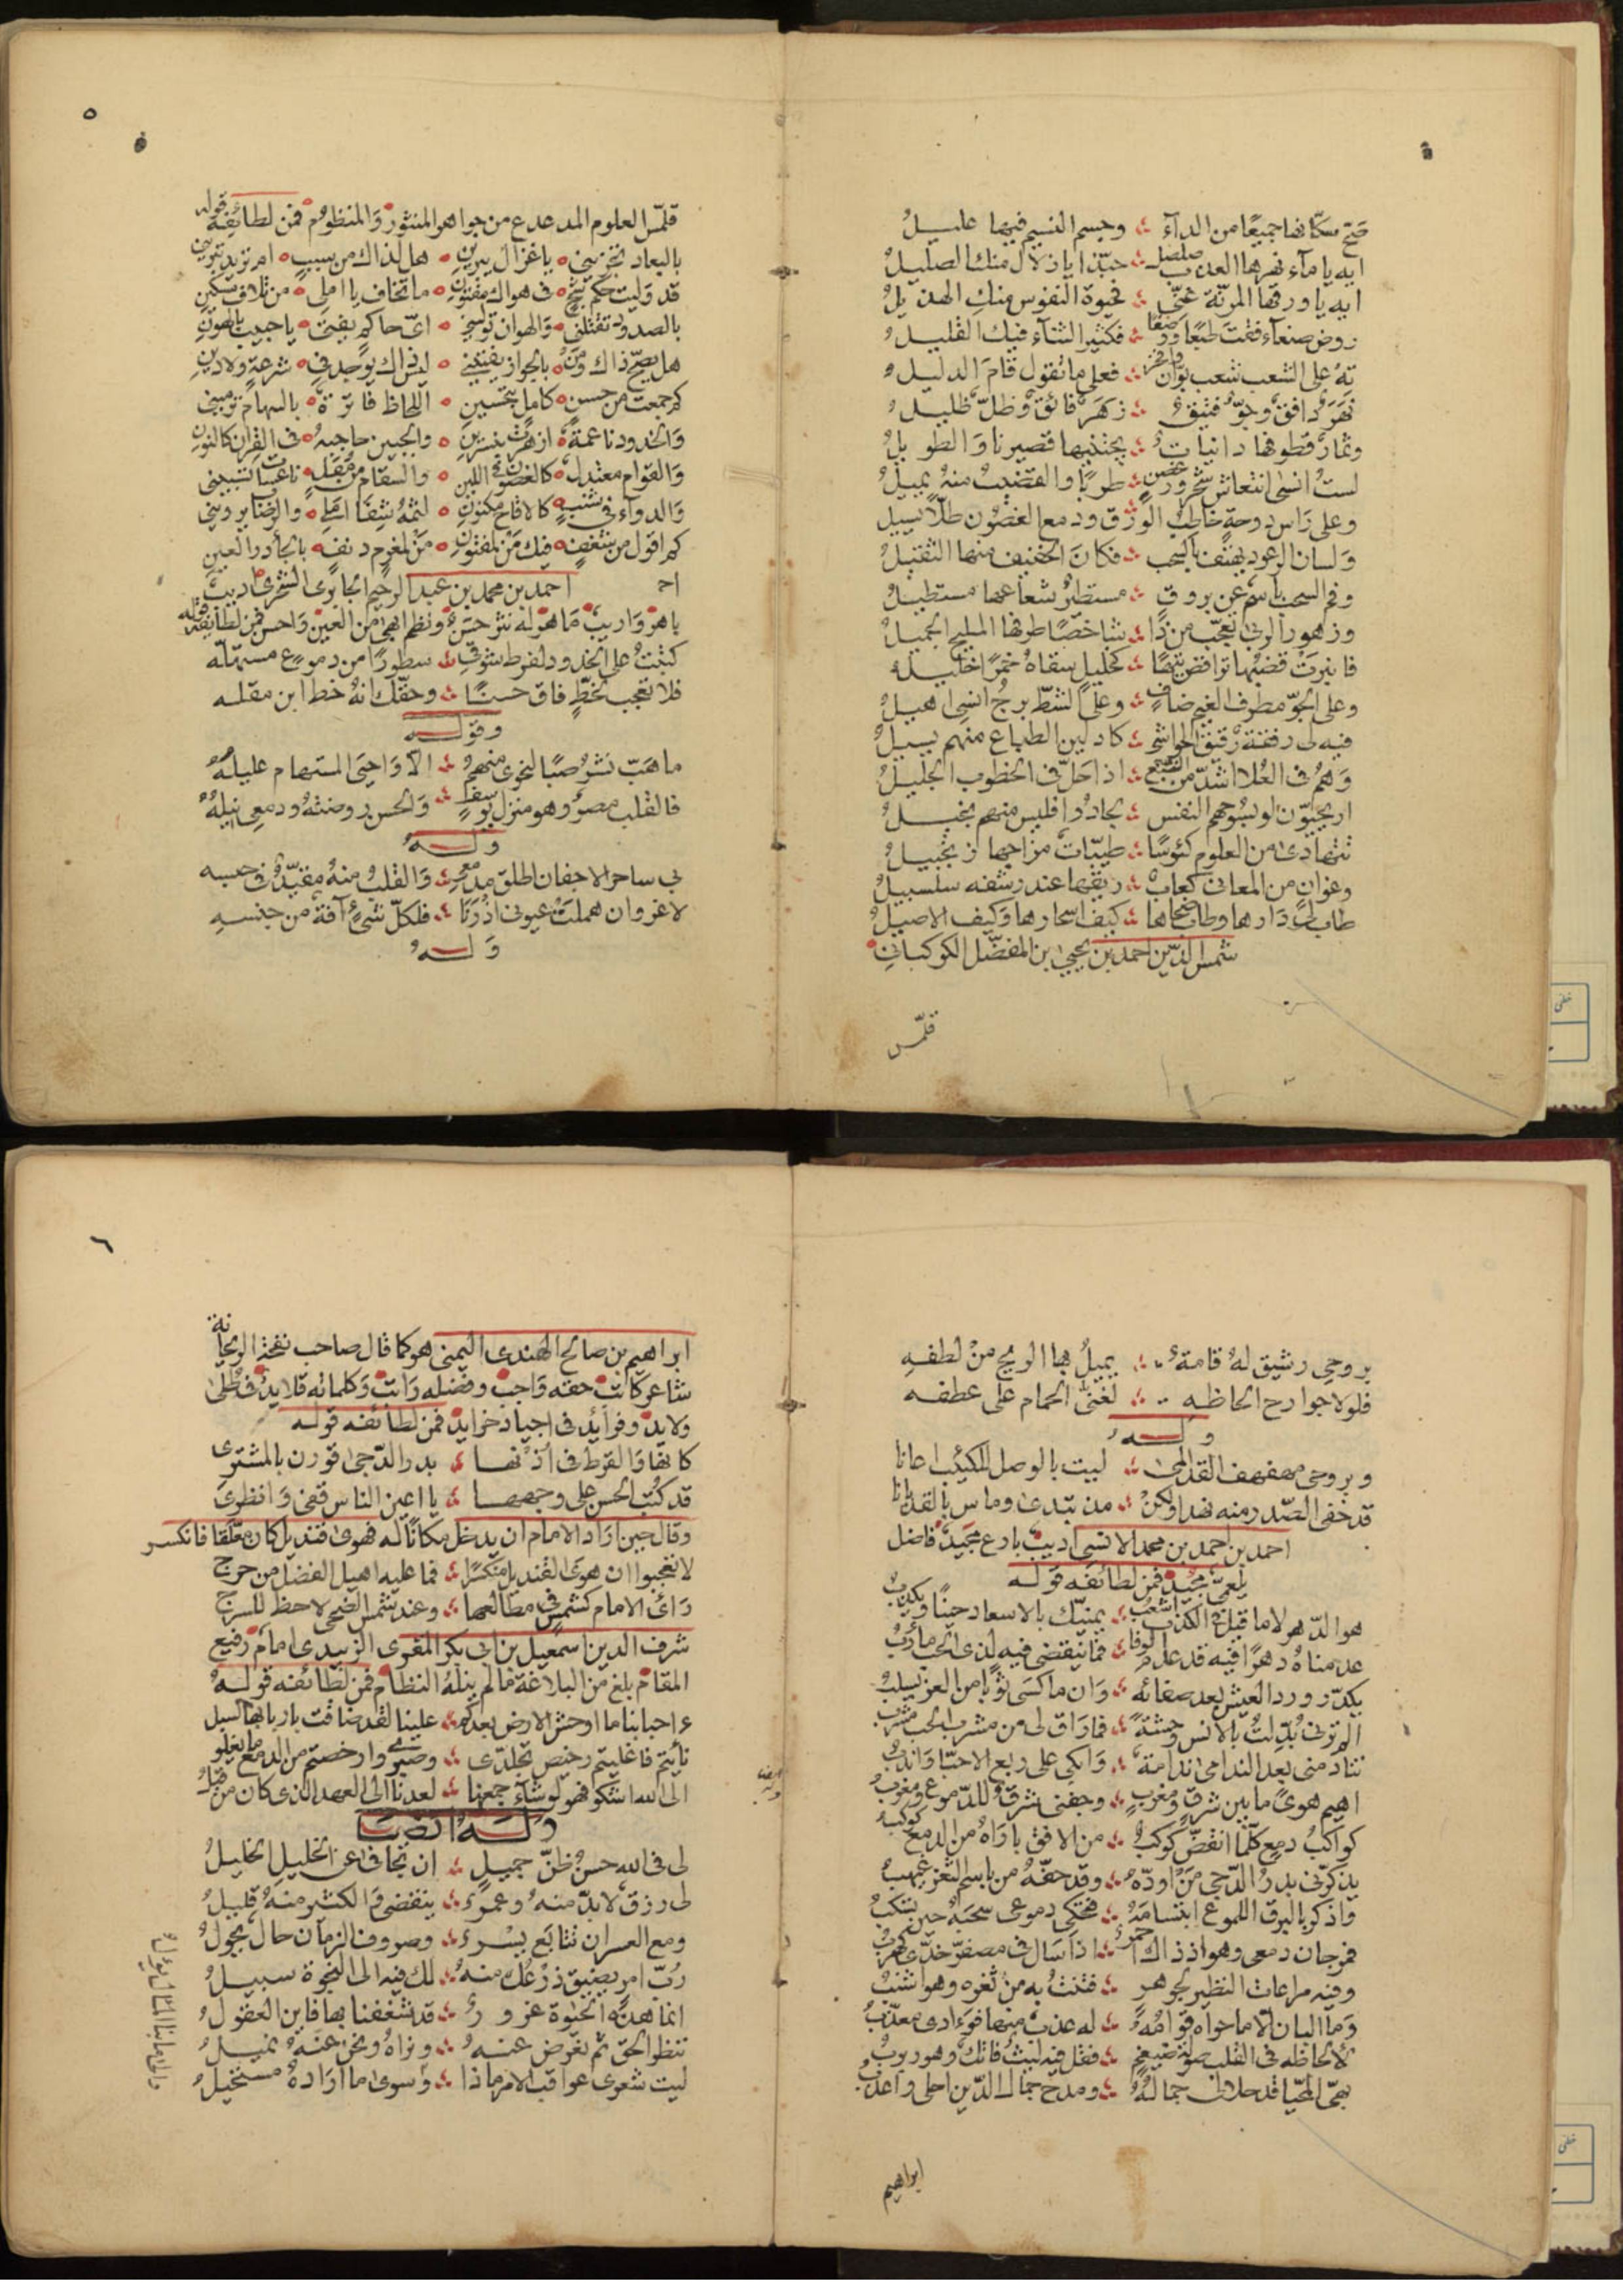 صح سكانها جميعًا من الداء ؞ وجسم النسيم فيها عليل
ايه يا ماء نهرها العذب صلصل ؞ حبّذا يا زلال منك الصليل
ايه يا ورقها المرنّة غنّي ؞ فحيوة النفوس منك الهديل
روض صنعاء فقت طبعًا ووصفًا ؞ فكثير الثناء فيك القليل
ته على الشعب شعب بوّان وافخر ؞ فعلى ما تقول قام الدليل
نهر دافق وجوّ فتيق ؞ زهر فائق وظلّ ظليل
وثمار قطوفها دانيات ؞ يجتنيها قصيرنا والطويل
لست انسى انتعاش شحرور غصن ؞ طربًا والقضيب منه يميل
وعلى راس دوحة خاطب الورق ودمع الغصون طلًا يسيل
ولسان الرعود يهتف بالسحب ؞ فكان الخفيف منها الثقيل
وفم السحب باسم عن بروق ؞ مستطار شعاعها مستطيل
وزهور الربى تعجّب من ذا ؞ شاخصًا طرفها المليح الجميل
فانبرت قضبها تراقص تيهًا ؞ كخليل سقاه خمرًا خليله
وعلى الجوّ مطرف الغيم ضاف ؞ وعلى الشطّ برج انس اهيل
فيه لى رفقة رقيق الحواشي ؞ كاد لين الطباع منهم يسيل
وهم فى العلا اشدّ من السبع ؞ اذا حلّ فى الخطوب الجليل
اريحيّون لو بسوحهم النفس ؞ بجادوا فليس منهم بخيل
نتهادى من العلوم كئوسًا ؞ طيّبات مزاجها زنجبيل
وغوان من المعانى كعاب ؞ ريقها عند رشفه سلسبيل
طاب لى دارها وطاب ضحاها ؞ كيف اسحارها وكيف الاصيل
شمس الدّين احمد بن يحيى بن المفضّل الكوكبانى
قلمّس
٥
قلمّس العلوم المدعدع من جواهر المنثور والمنظوم فمن لطائفه قوله
بالبعاد تجزينى ۰ يا غزال يبرين ۰ هل لذاك من سبب ۰ ام تريد تبرينى
قد وليت حكم شج ۰ فى هواك مفتون ۰ ما تخاف يا املى ۰ من تلاف مسكين
بالصدود تقتلنى ۰ والهوان توليني ۰ اىّ حاكم يفتى ۰ يا حبيب بالهون
هل يصحّ ذاك ومن ۰ بالجواز يفتيني ۰ ليس ذاك يوجد فى ۰ شرعة ولا دين
كم جمعت من حسن ۰ كامل بتحسين ۰ اللحاظ فاترة ۰ بالسهام ترمينى
والخدود ناعمة ۰ ازهرت بنسرين ۰ والجبين حاجبه ۰ فى القران كالنون
والقوام معتدل ۰ كالغصون فى اللين ۰ والسقام من مقل ۰ ناعسات تسبينى
والدواء فى شنب ۰ كالاقاح مكنون ۰ لثمه شفا المى ۰ والرضا يروينى
كم اقول من شغف ۰ فيك من لمفتون ۰ من لمغرم دنف ۰ بالجآدر العين
احمد بن محمد بن عبد الرحيم الجابرى الشحرى اديب
باهر واريب ماهر له نثر حسن ونظم ابهى من العين واحسن فمن لطائفه قوله
كتبت على الخدود لفرط شوقى ؞ سطورًا من دموع مستهله
فلا تعجب لخطّ فاق حسنًا ؞ وحقّك انه خط ابن مقله
وقوله
ما هبّ نشر صبا لنجوى منهم ؞ الا واحيى المستهام عليله
فالقلب مصر وهو منزل يوسف ؞ والحسن روضته ودمعى نيله
وله
بى ساحر الاجفان اطلق مدمعى ؞ والقلب منه مقيّد فى حبسه
لا غرو ان هملت عيونى اذ رنا ؞ فلكلّ شىء آفة من جنسه
وله
بروحى رشيق له قامة ؞ يميل بها الريح من لطفه
فلولا جوارح الحاظه ؞ لغنّى الحمام على عطفه
وله
وبروحى مهفهف القد المى ؞ لبيت بالوصل للكئيب اعانا
قد خفى الصّدر منه نهدًا ولكن ؞ مذ تبدى وماس بالقد بانا
احمد بن احمد بن محمد الانسى اديب بارع مجيد فاضل
يلمعىّ مجيد فمن لطائفه قوله
هو الدّهر لا ما قيل فى الكذب اشعب ؞ يمنيّك بالاسعاد حينًا ويكذب
عدمناه دهرًا فيه قد عدم الوفا ؞ فما ينقضى فيه لذى الحب مأرب
يكدّر ورد العيش بعد صفائه ؞ وان ما كسى ثوبًا من العز يسلب
الم ترنى بدّلت بالانس وحشة ؞ فما راق لى من مشرب الحب مشرب
تنادمنى بعد الندامى ندامة ؞ وابكى على ربع الاحبّا واندب
اهيم هوى ما بين شرق ومغرب ؞ وجفنى شرق للدّموع ومغرب
كواكب دمع كلّما انقضّ كوكب ؞ من الافق باراه من الدمع كوكب
يذكّرنى بدر الدّجى من اودّه ؞ وقد حفّه من باسم الثغر غيهب
واذكر بالبرق اللموع ابتسامه ؞ فتحكى دموعى سحبه حين يسكب
فمرجان دمعى وهو اذ ذاك احمر ؞ اذا سال فى مصفرّ خدّى كهرب
وفيه مراعات النظير لجوهر ؞ فتنت به من ثغره وهو اشنب
وما البان الا ما حواه قوامه ؞ له عذب منها فؤادى معذّب
لالحاظه فى القلب صولة ضيغم ؞ فقل فيه ليث فاتك وهو ربرب
بهىّ المحيّا قد حلالى جماله ؞ ومدح جمال الدّين احلى واعذب
ابراهيم
٦
ابراهيم بن صالح الهندى اليمنى هو كما قال صاحب نفحة الريحانة
شاعر كانت حقه واجب وفضله راتب وكلماته قلايد فى طلى
ولايد وفرائد فى اجياد خرايد فمن لطائفه قوله
كانها والقرط فى اذنها ؞ بدر الدّجى قورن بالمشترى
قد كتب الحسن على وجهها ؞ يا اعين الناس قفى وانظرى
وقال حين اراد الامام ان يدخل مكانًا له فهوى قنديل كان معلّقا فانكسر
لا تعجبوا ان هوى القنديل منكسرًا ؞ فما عليه اهيل الفضل من حرج
راى الامام كشمس فى مطالعها ؞ وعند شمس الضحى لا حظ للسرج
شرف الدين اسمعيل بن ابى بكر المقرى الزبيدى امام رفيع
المقام بلغ من البلاغة ما لم ينله النظام فمن لطائفه قوله
ءاحبابنا ما اوحش الارض بعدكم ؞ علينا لقد ضاقت بارباتها السبل
نأيتم فاغليتم رخيص تجلّدى ؞ وصبرى وارخصتم من الدمع ما يغلو
الى الله اشكو فهو لو شاء جمعنا ؞ لعدنا الى العهد الذى كان من قبل
وله ايضًا
لى فى الله حسن ظنّ جميل ؞ ان تجافى عن الخليل الخليل
لى رزق لا بدّ منه وعمر ؞ ينقضى والكثير منه قليل
ومع العسر ان تتابع يسر ؞ وصروف الزمان حال تحول
ربّ امر يضيق ذرعك منه ؞ لك فيه الى النجوة سبيل
انما هذه الحيوة غرور ؞ قد شغفنا بها فاين العقول
ننظر الحق ثم نعرض عنه ؞ ونراه ونحن عنه نميل
ليت شعرى عواقب الامر ماذا ؞ وسوى ما اراده مستحيل